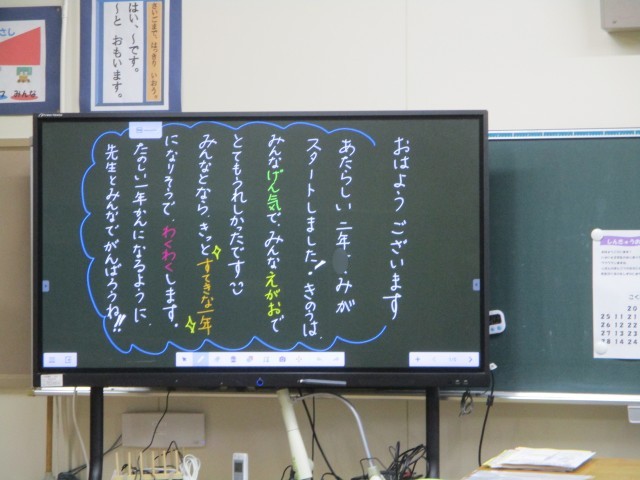 おはよう ございます
あたらしい 二年 みが
スタートしました! きのうは、
みんなげん気で、みんなえがおで
とてもうれしかったです
みんなとなら、きっとすてきな一年
になりそうで、わくわくします。
たのしい一年かんになるように、
先生とみんなでがんばろうね!!
さいごまで、はっきり いおう。
はい、~です。
~と おもいます。
さし
みんな